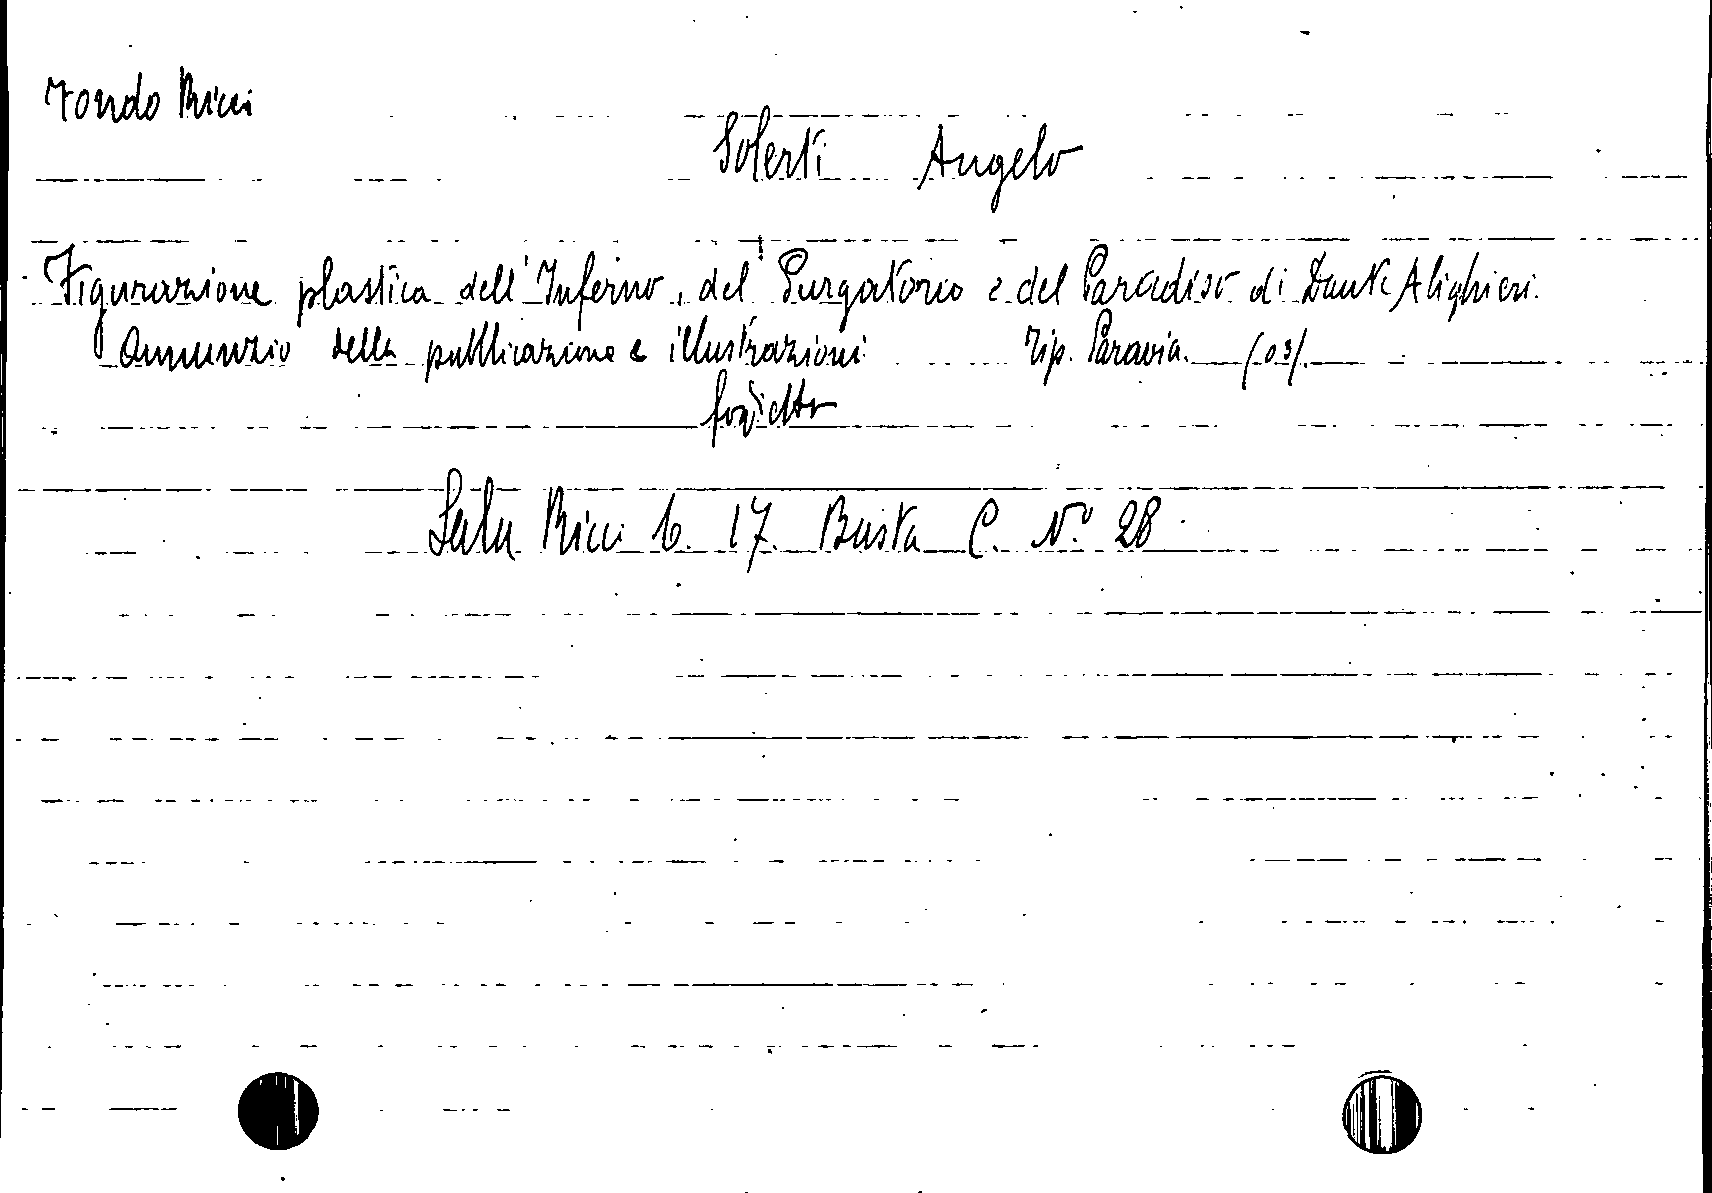 Fondo Ricci
Solerti Angelo
Figurazione plastica dell'Inferno, del Purgatorio e del Paradiso di Dante Alighieri.
Annunzio della pubblicazione e illustrazioni Tip. Paravia. (03).
Sala Ricci b. 17. Busta C. N.º 28